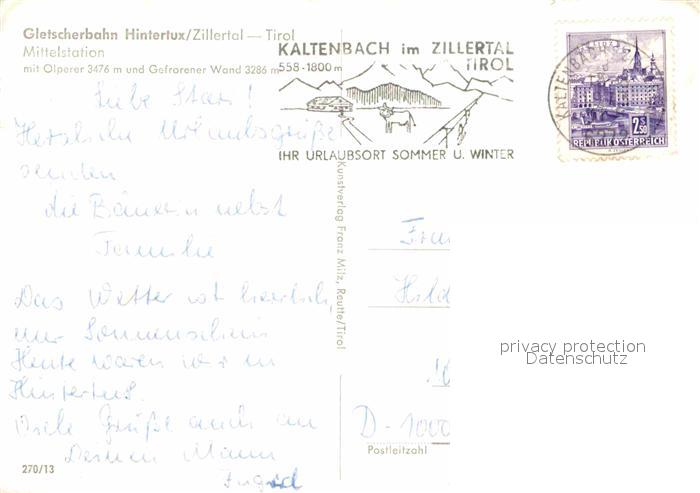 Gletscherbahn Hintertux/Zillertal — Tirol
Mittelstation
mit Olperer 3476 m und Gefrorener Wand 3286 m
KALTENBACH im ZILLERTAL
558-1800 m TIROL
IHR URLAUBSORT SOMMER U. WINTER
2.50
REPUBLIK ÖSTERREICH
KALTENBACH
Liebe
Herzliche Urlaubsgrüße
senden
die Bäuerin nebst
Familie
Das Wetter ist herrlich,
nur Sonnenschein
Heute waren wir in
Hintertux.
Viele Grüße auch an
Deinen Mann
Ingrid
Kunstverlag Franz Milz, Reutte/Tirol
Frau
Hild
D-1000
Postleitzahl
privacy protection
Datenschutz
270/13